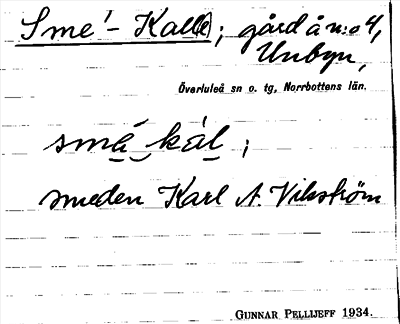 Sme'-Kall(e); gård å n:o 4,
Unbyn,
Överluleå sn o. tg, Norrbottens län.
smé̱ ‿ káḻ ;
smeden Karl A. Vikström
GUNNAR PELLIJEFF 1934.